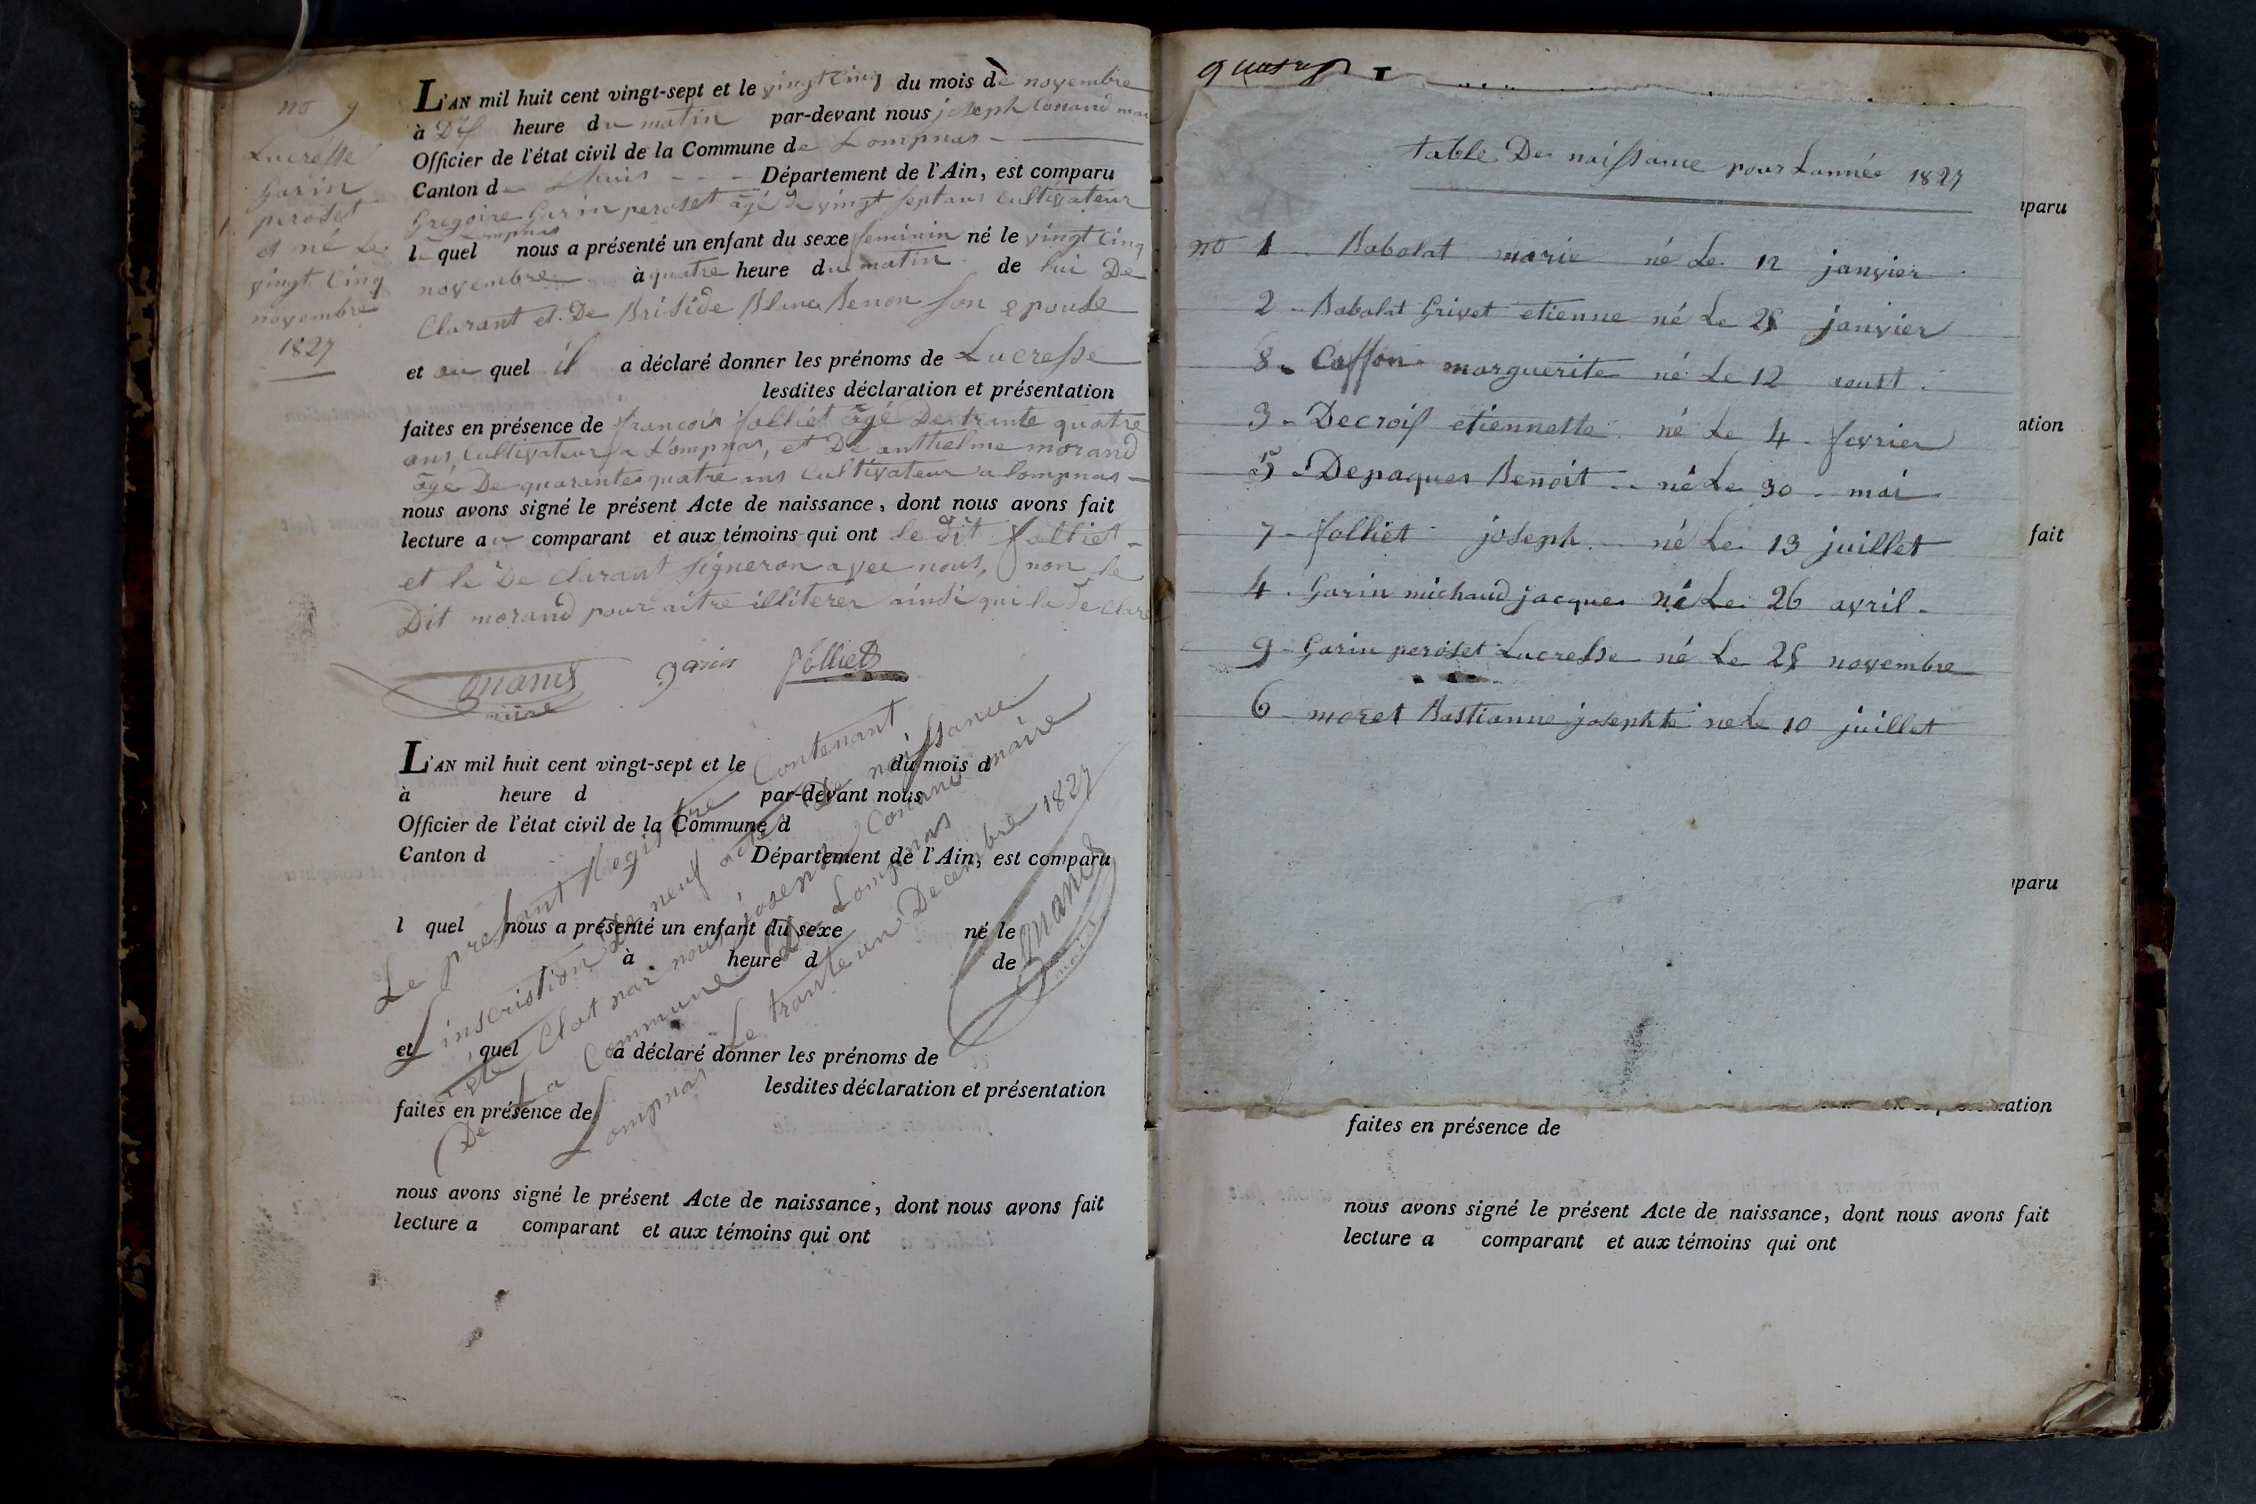 no 9
Lucresse
Garin
peroset
et né le
vingt Cinq
novembre
1827
L'AN mil huit cent vingt-sept et le vingt Cinq du mois de novembre
à Dix heure du matin par-devant nous joseph Conand mai
Officier de l'état civil de la Commune de Lompnas
Canton de Lhuis Département de l'Ain, est comparu
Gregoire Garin peroset agé de vingt sept ans Cultivateur
a Lompnas
le quel nous a présenté un enfant du sexe feminin né le vingt Cinq
novembre à quatre heure du matin de lui De
Clarant et De Briside Blanc Benon son epouse
et au quel il a déclaré donner les prénoms de Lucresse
lesdites déclaration et présentation
faites en présence de francois folliet agé De trante quatre
ans, Cultivateur a Lompnas, et De anthelme morand
age De quarante quatre ans Cultivateur a lompnas
nous avons signé le présent Acte de naissance, dont nous avons fait
lecture au comparant et aux témoins qui ont le dit folliet
et le De Clarant signeron avec nous, non le
Dit morand pour aitre illiterer ainsi qui la de Claré
Conand garin folliet
maire
L'AN mil huit cent vingt-sept et le du mois d
à heure d par-devant nous
Officier de l'état civil de la Commune d
Canton d Département de l'Ain, est comparu
l quel nous a présenté un enfant du sexe né le
à heure d de
et quel a déclaré donner les prénoms de
lesdites déclaration et présentation
faites en présence de
nous avons signé le présent Acte de naissance, dont nous avons fait
lecture a comparant et aux témoins qui ont
Le present Registre Contenant
L inscription De neuf acte De naissance
a été Clot par nous joseph Conand maire
De La Commune De Lompnas
Lompnas Le trante un Decembre 1827
Conand
maire
table De naissance pour Lannée 1827
no 1 Babolat marie né Le 12 janvier
2 Babolat Grivet etienne né Le 25 janvier
8 Caffon marguerite né Le 12 aoust
3 Decroix etiennette né Le 4 fevrier
5 Depaques Benoit né Le 30 mai
7 folliet joseph né Le 13 juillet
4 Garin michaud jacques né Le 26 avril
9 Garin peroset Lucresse né Le 25 novembre
6 moret Bastianne josephte né Le 10 juillet
mparu
ation
fait
mparu
ation
faites en présence de
nous avons signé le présent Acte de naissance, dont nous avons fait
lecture a comparant et aux témoins qui ont